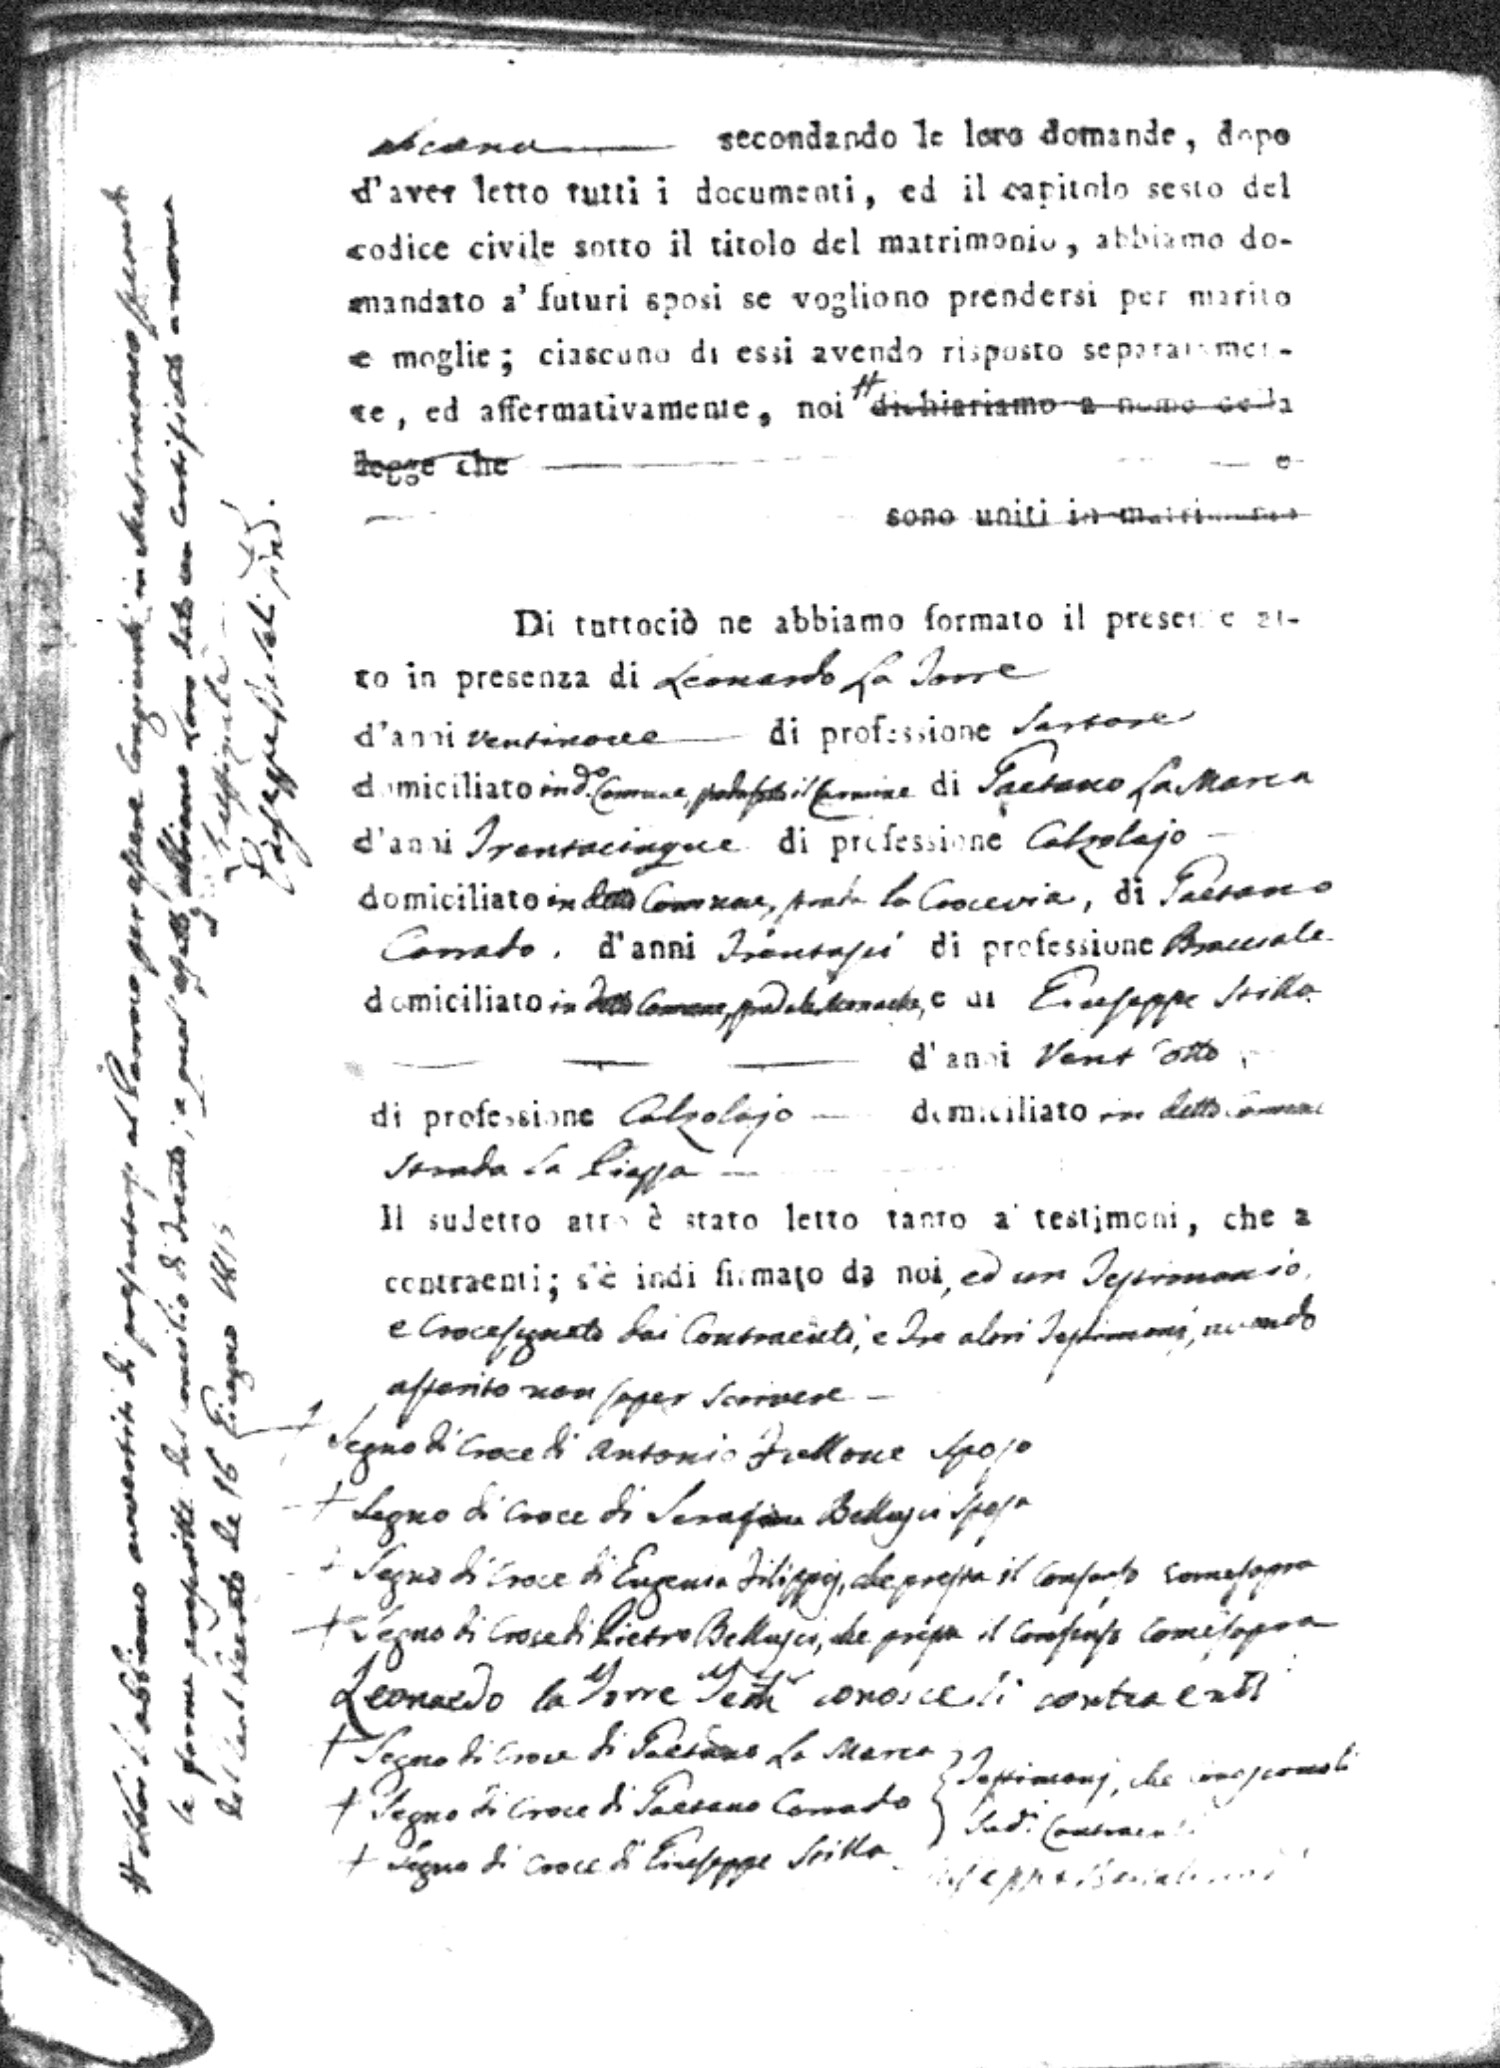 alcuna secondando le loro domande, dopo
d'aver letto tutti i documenti, ed il capitolo sesto del
codice civile sotto il titolo del matrimonio, abbiamo do-
mandato a' futuri sposi se vogliono prendersi per marito
e moglie; ciascuno di essi avendo risposto separatamen-
te, ed affermativamente, noi # dichiariamo a nome della
legge che e
sono uniti in matrimonio
Di tuttociò ne abbiamo formato il presente at-
to in presenza di Leonardo La Torre
d'anni ventinove di professione Sartore
domiciliato in d.o Comune, strada sotto il Carmine di Gaetano La Marca
d'anni Trentacinque di professione Calzolajo
domiciliato in detto Comune, strada la Crocevia, di Gaetano
Corrado, d'anni Trentasei di professione Bracciale
domiciliato in detto Comune, strada le Monache, e di Giuseppe Stilla
d'anni Vent'otto
di professione Calzolajo domiciliato in detto Comune
Strada La Piazza
Il sudetto atto è stato letto tanto a' testimoni, che a
contraenti; s'è indi firmato da noi, ed un Testimonio,
e Crocesignato dai Contraenti, e Tre altri Testimonj, avendo
asserito non saper Scrivere
+ Segno di Croce di Antonio Trellone Sposo
+ Segno di Croce di Serafina Bellusci Sposa
+ Segno di Croce di Eugenia Filippis, che presta il Consenso come sopra
+ Segno di Croce di Pietro Bellusci, che presta il Consenso come sopra
Leonardo la Torre Test. conosce li contraenti
+ Segno di Croce di Gaetano La Marca
+ Segno di Croce di Gaetano Corrado
+ Segno di Croce di Giuseppe Stilla
Testimonj, che conoscono li
sud.i Contraenti
# Noi l'abbiamo avvertito di presentarsi al Parroco per essere Congiunti in Matrimonio secondo
le forme prescritte dal concilio di Trento; a qual effetto abbiamo Loro dato un Certificato a norma
del Real Decreto de 16 Giugno 1815